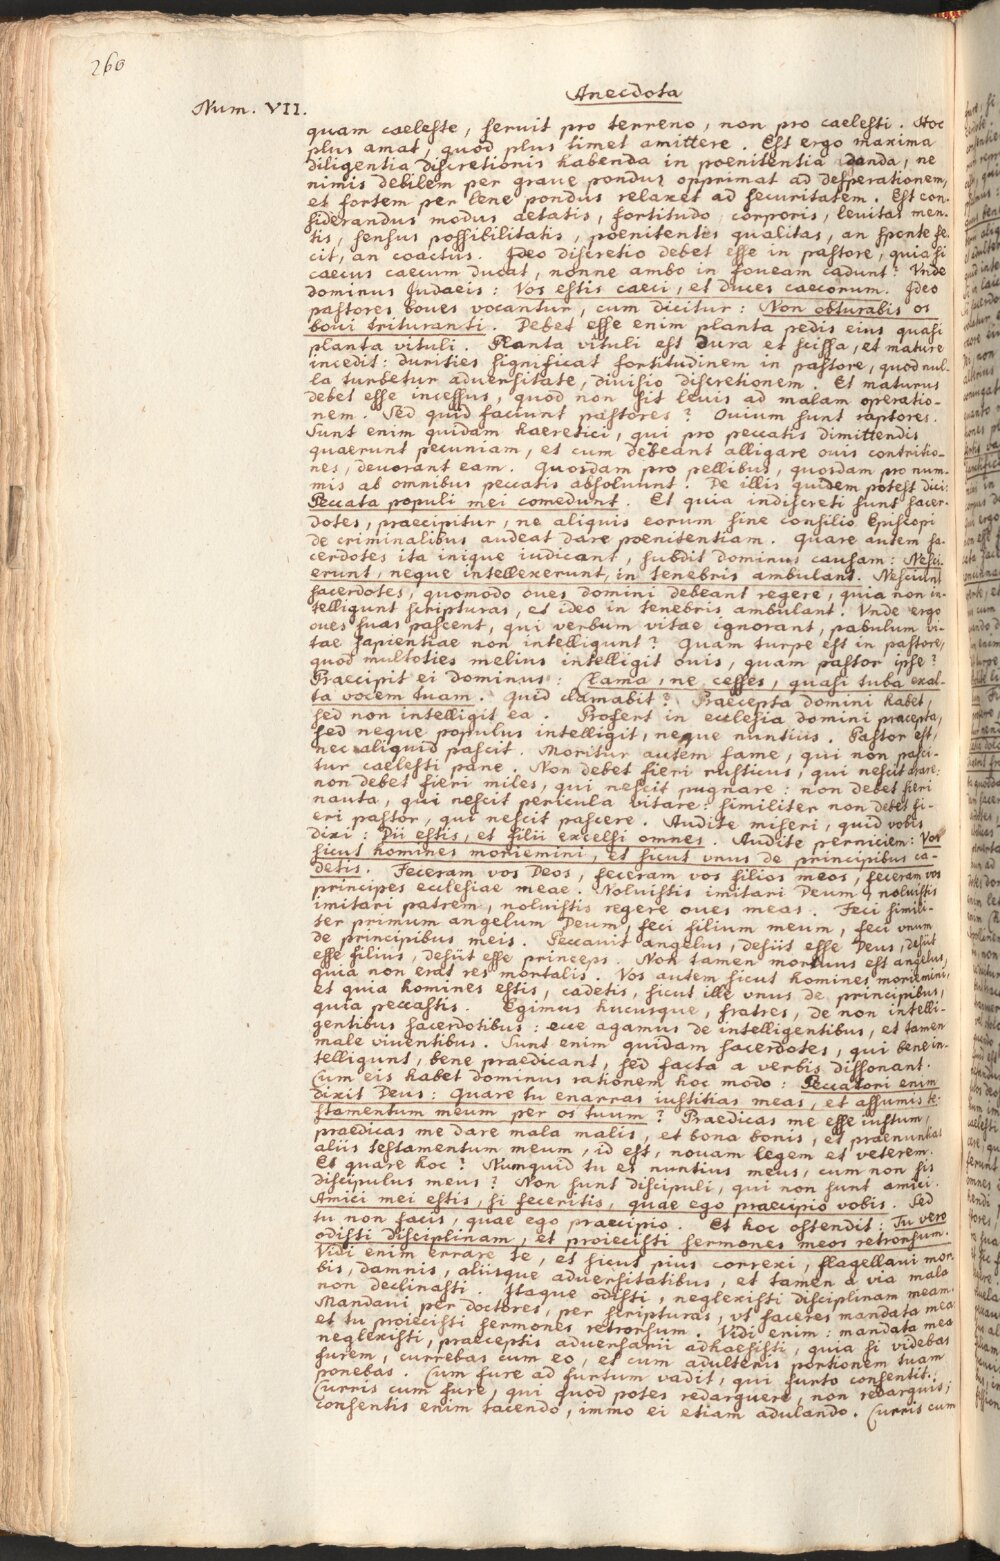 260
Anecdota
Num. VII.
quam caeleste, seruit pro terreno, non pro caelesti. Hoc
plus amat, quod plus timet amittere. Est ergo maxima
diligentia discretionis habenda in poenitentia danda, ne
nimis debilem per graue pondus opprimat ad desperationem,
et fortem per lene pondus relaxet ad securitatem. Est con-
siderandus modus aetatis, fortitudo corporis, leuitas men-
tis, sensus possibilitatis, poenitentis qualitas, an sponte fe-
cit, an coactus. Ideo discretio debet esse in pastore, quia si
caecus caecum ducat, nonne ambo in foueam cadunt? Vnde
dominus Judaeis: Vos estis caeci, et duces caecorum. Ideo
pastores boues vocantur, cum dicitur: Non obturabis os
boui trituranti. Debet esse enim planta pedis eius quasi
planta vituli. Planta vituli est dura et scissa, et mature
incedit: durities significat fortitudinem in pastore, quod nul-
la turbetur aduersitate, diuisio discretionem. Et maturus
debet esse incessus, quod non sit leuis ad malam operatio-
nem. Sed quid faciunt pastores? Ouium sunt raptores.
Sunt enim quidam haeretici, qui pro peccatis dimittendis
quaerunt pecuniam, et cum debeant alligare ouis contritio-
nes, deuorant eam. Quosdam pro pellibus, quosdam pro num-
mis ab omnibus peccatis absoluunt. De illis quidem potest dici:
Peccata populi mei comedunt. Et quia indiscreti sunt sacer-
dotes, praecipitur, ne aliquis eorum sine consilio Episcopi
de criminalibus audeat dare poenitentiam. Quare autem sa-
cerdotes ita inique iudicant, subdit dominus causam: Nesci-
erunt, neque intellexerunt, in tenebris ambulant. Nesciunt
sacerdotes, quomodo oues domini debeant regere, quia non in-
telligunt scripturas, et ideo in tenebris ambulant. Vnde ergo
oues suas pascent, qui verbum vitae ignorant, pabulum vi-
tae sapientiae non intelligunt? Quam turpe est in pastore,
quod multoties melius intelligit ouis, quam pastor ipse?
Praecipit ei dominus: Clama, ne cesses, quasi tuba exal-
ta vocem tuam. Quid clamabit? Praecepta domini habet,
sed non intelligit ea. Profert in ecclesia domini praecepta,
sed neque populus intelligit, neque nuntius. Pastor est,
nec aliquid pascit. Moritur autem fame, qui non pasci-
tur caelesti pane. Non debet fieri rusticus, qui nescit arare:
non debet fieri miles, qui nescit pugnare: non debet fieri
nauta, qui nescit pericula vitare: similiter non debet fi-
eri pastor, qui nescit pascere. Audite miseri, quid vobis
dixi: Dii estis, et filii excelsi omnes. Audite perniciem: Vos
sicut homines moriemini, et sicut vnus de principibus ca-
detis. Feceram vos Deos, feceram vos filios meos, feceram vos
principes ecclesiae meae. Noluistis imitari Deum, noluistis
imitari patrem, noluistis regere oues meas. Feci simili-
ter primum angelum Deum, feci filium meum, feci vnum
de principibus meis. Peccauit angelus, desiit esse Deus, desiit
esse filius, desiit esse princeps. Non tamen mortuus est angelus,
quia non erat res mortalis. Vos autem sicut homines moriemini,
et quia homines estis, cadetis, sicut ille vnus de principibus,
quia peccastis. Egimus hucusque, fratres, de non intelli-
gentibus sacerdotibus: ecce agamus de intelligentibus, et tamen
male viuentibus. Sunt enim quidam sacerdotes, qui bene in-
telligunt, bene praedicant, sed facta a verbis dissonant.
Cum eis habet dominus rationem hoc modo: Peccatori enim
dixit Deus: Quare tu enarras iustitias meas, et assumis te-
stamentum meum per os tuum? Praedicas me esse iustum,
praedicas me dare mala malis, et bona bonis, et praenuntias
aliis testamentum meum, id est, nouam legem et veterem.
Et quare hoc? Numquid tu es nuntius meus, cum non sis
discipulus meus? Non sunt discipuli, qui non sunt amici.
Amici mei estis, si feceritis, quae ego praecipio vobis. Sed
tu non facis, quae ego praecipio. Et hoc ostendit: Tu vero
odisti disciplinam, et proiecisti sermones meos retrorsum.
Vidi enim errare te, et sicut pius correxi, flagellaui mor-
bis, damnis, aliisque aduersitatibus, et tamen a via mala
non declinasti. Itaque odisti, neglexisti disciplinam meam.
Mandaui per doctores, per scripturas, vt faceres mandata mea
et tu proiecisti sermones retrorsum. Vidi enim: mandata mea
neglexisti, praeceptis aduersarii adhaesisti, quia si videbas
furem, currebas cum eo, et cum adulteris portionem tuam
ponebas. Cum fure ad furtum vadit, qui furto consentit.
Curris cum fure, qui quod potes redarguere, non redarguis;
consentis enim tacendo, immo ei etiam adulando. Curris cum